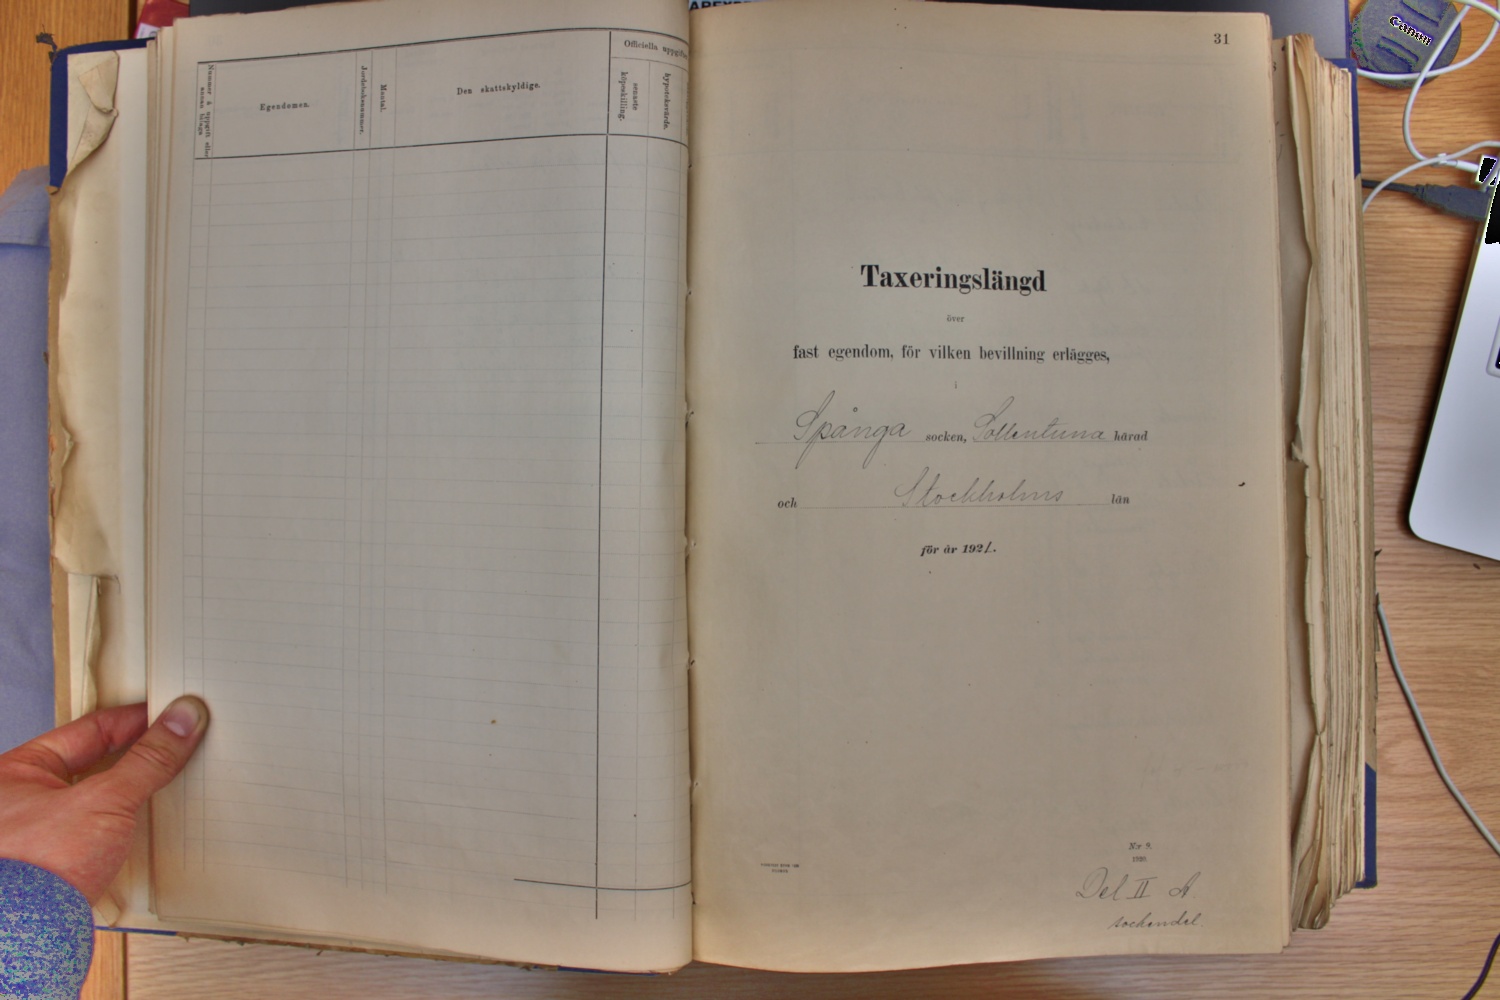 Nummer å uppgift eller
annan bilaga
Egendomen.
Jordeboksnummer.
Mantal.
Den skattskyldige.
Officiella uppgifter
senaste
köpeskilling.
hypoteksvärde.
31
Taxeringslängd
över
fast egendom, för vilken bevillning erlägges,
i
Spånga socken, Sollentuna härad
och Stockholms län
för år 1921.
N:r 9.
1920.
Del II A
sockendel.
Canon